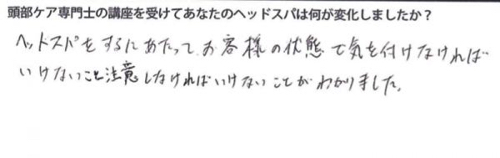 頭部ケア専門士の講座を受けてあなたのヘッドスパは何が変化しましたか？
ヘッドスパをするにあたってお客様の状態で気を付けなければ
いけないこと注意しなければいけないことがわかりました。